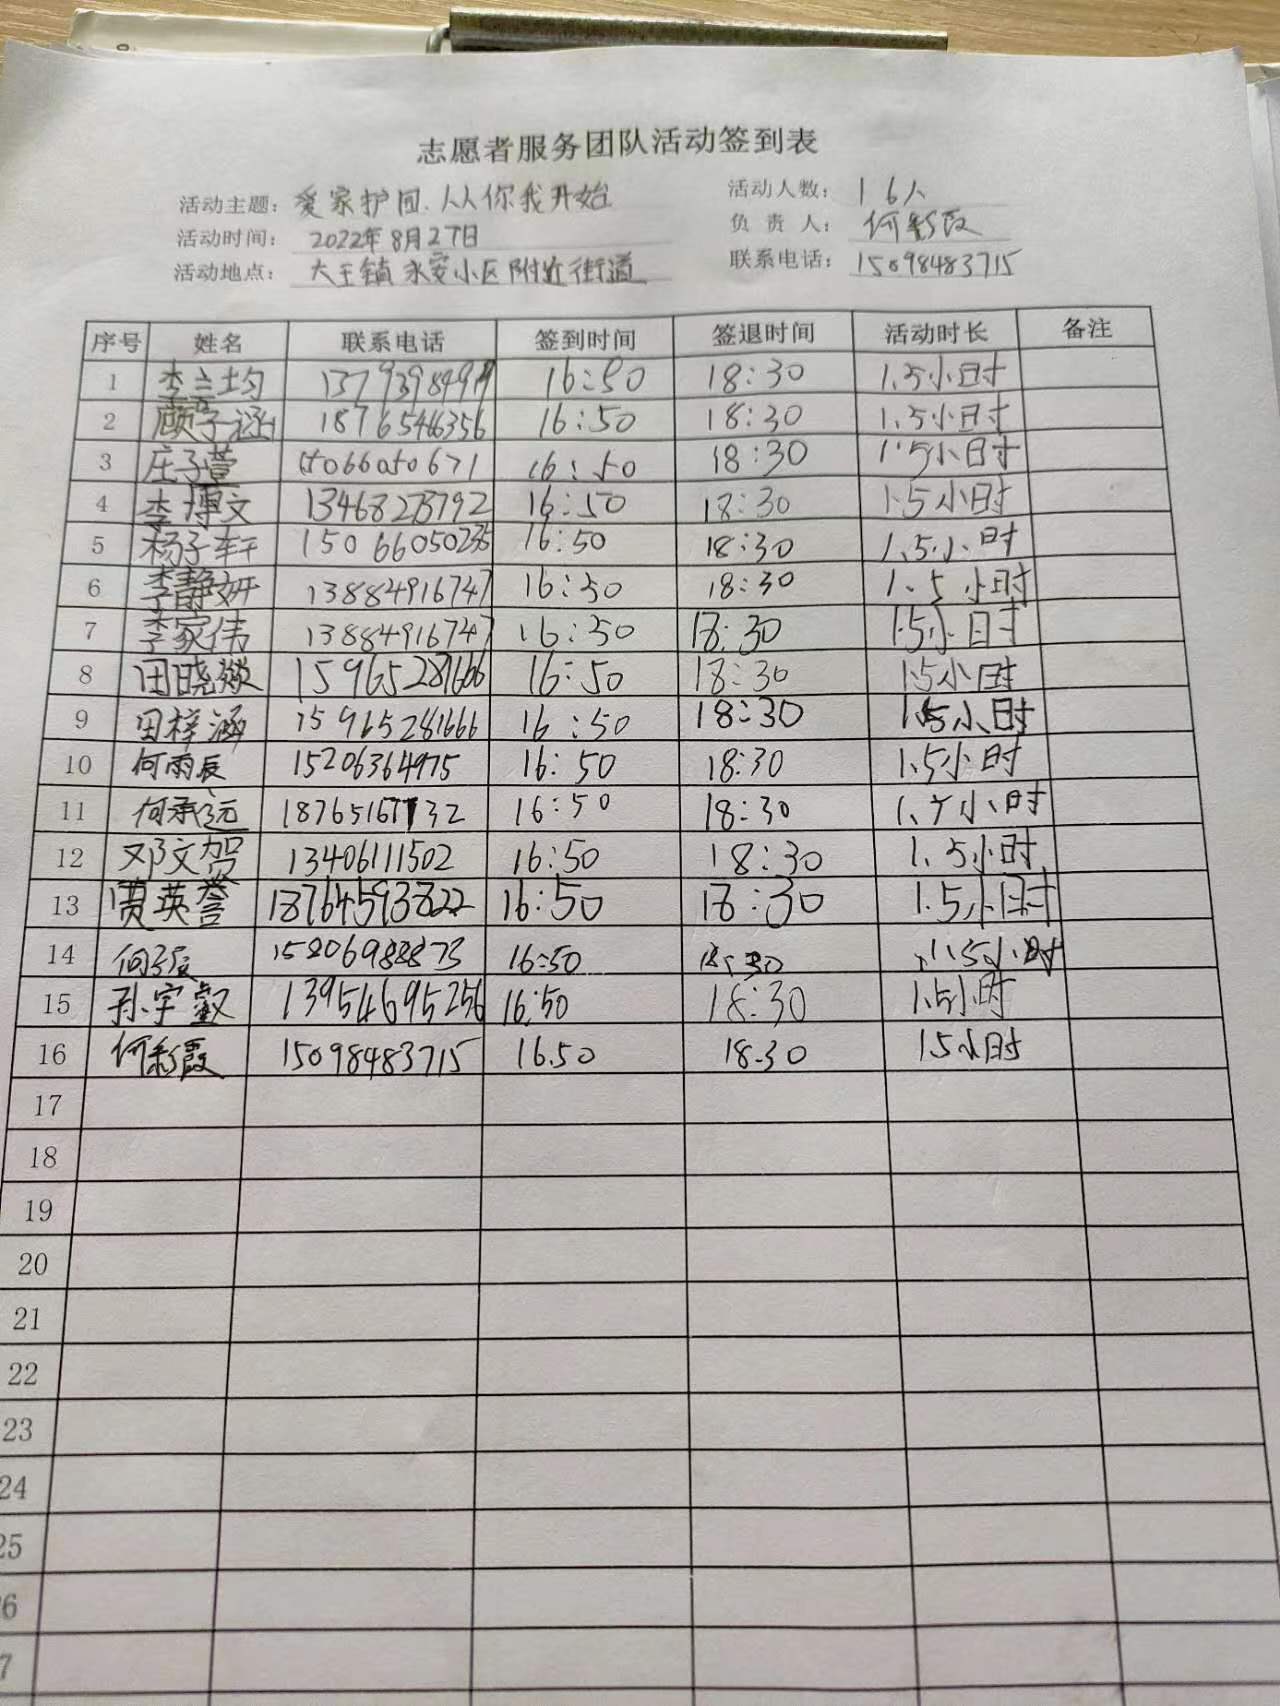 志愿者服务团队活动签到表
活动主题: 爱家护园.从你我开始 活动人数: 16人
活动时间: 2022年8月27日 负责人: 何彩霞
活动地点: 大王镇永安小区附近街道 联系电话: 15098483715
序号 姓名 联系电话 签到时间 签退时间 活动时长 备注
1 16:50 18:30 1.5小时
2 顾子涵 18765466356 16:50 18:30 1.5小时
3 庄子萱 15066050671 16:50 18:30 1.5小时
4 李博文 16:50 18:30 1.5小时
5 杨子轩 16:50 18:30 1.5小时
6 李静妍 13884916747 16:50 18:30 1.5小时
7 李家伟 13884916747 16:50 18:30 1.5小时
8 16:50 18:30 1.5小时
9 田梓涵 15965281666 16:50 18:30 1.5小时
10 何雨辰 15206364975 16:50 18:30 1.5小时
11 何承远 16:50 18:30 1.5小时
12 邓文贺 13406111502 16:50 18:30 1.5小时
13 贾英誉 18764593822 16:50 18:30 1.5小时
14 16:50 18:30 1.5小时
15 孙宇叡 13954695256 16:50 18:30 1.5小时
16 何彩霞 15098483715 16.50 18.30 1.5小时
17
18
19
20
21
22
23
24
25
6
7